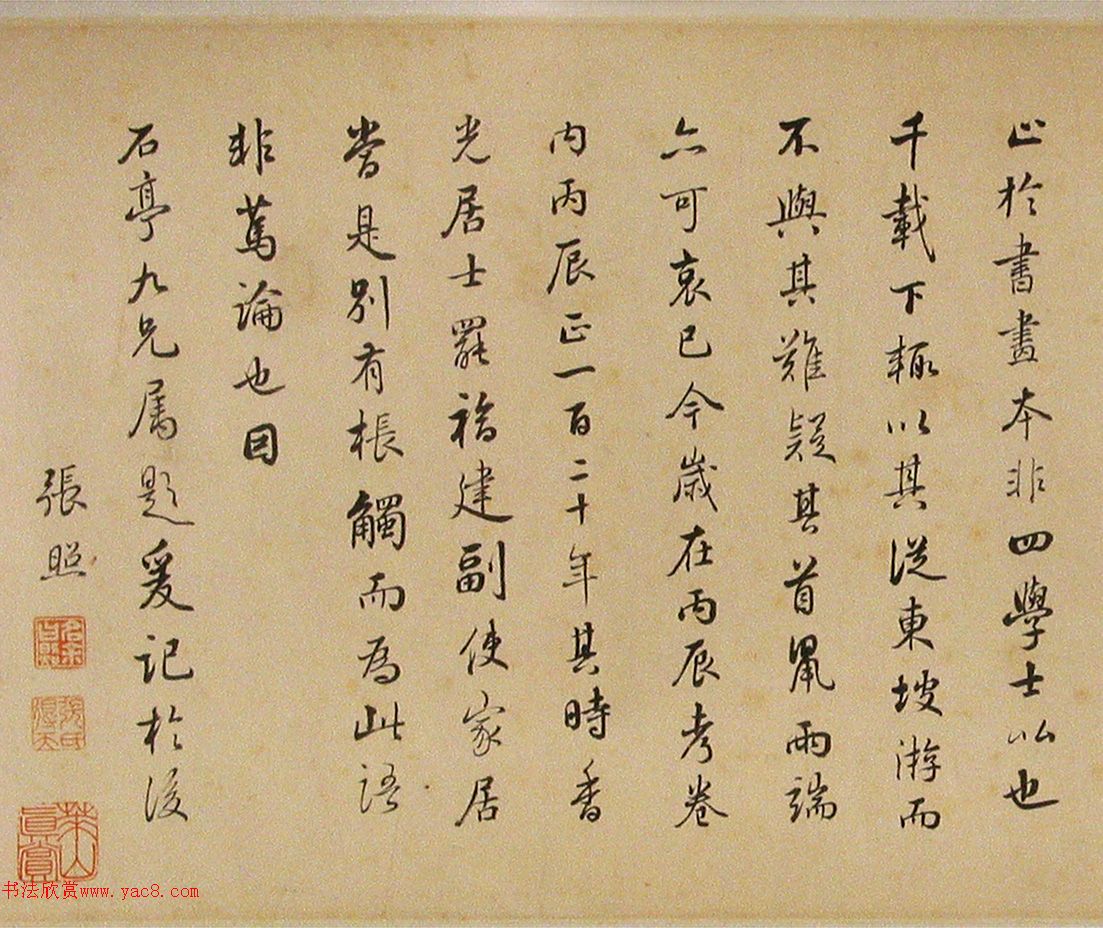 止於書畫本非四學士比也
千載下輒以其從東坡游而
不與其難疑其首鼠兩端
亦可哀已今歲在丙辰考卷
内丙辰正一百二十年其時香
光居士罷福建副使家居
當是別有棖觸而為此語
非篤論也因
石亭九兄属題爰記於後
張照
張氏得天
萊山真賞
书法欣赏www.yac8.com